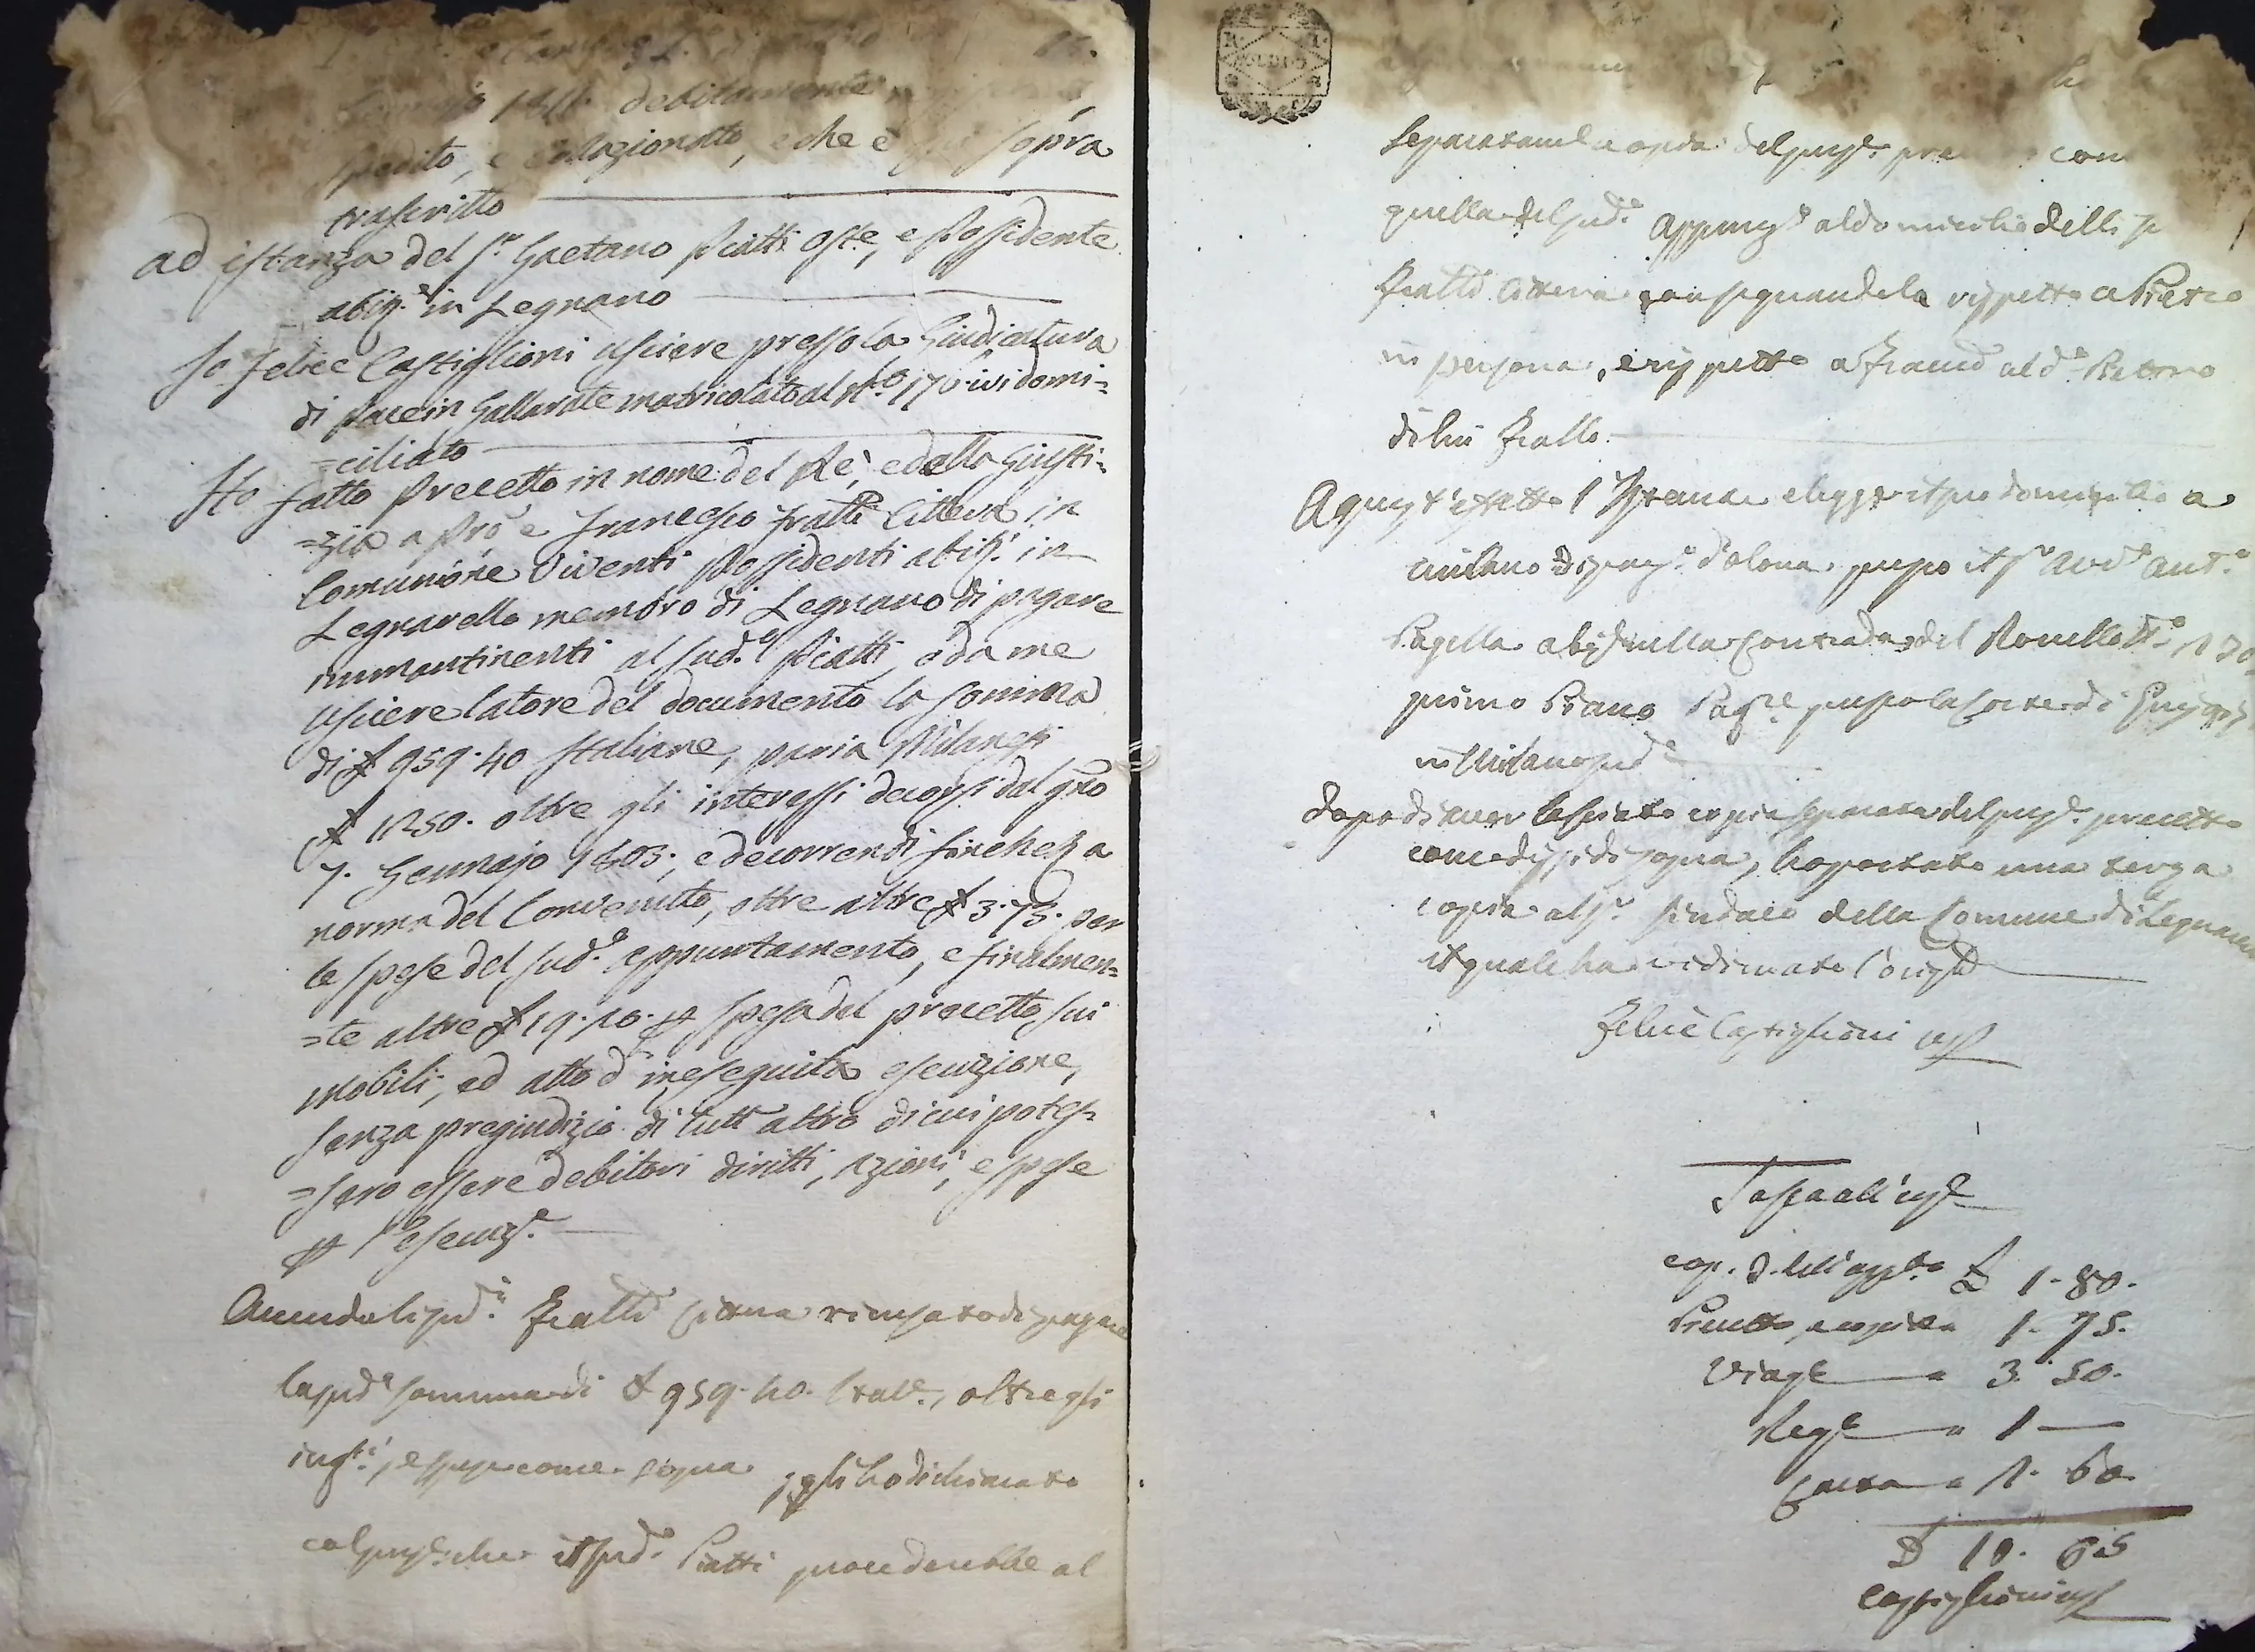 debitamente
spedito, e collazionato, e che è qui sopra
trascritto
ad istanza del S.r Gaetano Piatti oste, e Possidente
abit.e in Legnano
Io Felice Castiglioni usciere presso la Giudicatura
di Pace in Gallarate matricolato al N.o 170 ivi domi=
=ciliato
Ho fatto Precetto in nome del Rè, e della Giusti=
=zia a Pro e Francesco Fratti Cittera in
Comunione viventi Possidenti abit.i in
Legnarello membro di Legnano di pagare
immantinenti al sud.o Piatti, o da me
usciere latore del documento la somma
di £ 959.40 Italiane, pari a Milanesi
£ 1250. oltre gli interessi decorsi dal gno
7. Gennajo 1803; e decorrendi finche a
norma del Convenuto, oltre altre £ 3.75. per
le spese del sud.o appuntamento, e finalmen=
=te altre £ 19.10. per spesa del precetto sui
Mobili, ed atto d'ineseguita esecuzione,
senza pregiudizio di tutt'altro di cui potes=
=sero essere debitori diritti, azioni, e spese
per l'esecuz.e
Avendo li sud.i Fratti Cittera ricusato di pagare
la sud.a somma di £ 959.40. Ital.e, oltre gli
int.i, e spese come sopra, gli ho dichiarato
col pres.e che il sud.o Piatti procederebbe al
SOLDI
separatam.e copia del pres.e precetto con
quella del sud.o App.to al domicilio delli
Fratti Cittera consegnandola rispetto a Pietro
in persona, e rispetto a Fran.co al d.o Pietro
di lui Fratto.
A quest'effetto l'Istante elegge il suo domicilio a
Milano Dipart.o d'Olona presso il S.r Avv.o Ant.o
Pagella abit.e nella Contrada del Rovello N.o
primo Piano Pag.e presso la Corte di Giustizia
in Milano sud.o
Dopo di aver lasciato copia separata del pres.e precetto
come dissi di sopra, ho portato una terza
copia al S.r Sindaco della Comune di Legnano
il quale ha vidimato l'orig.e
Felice Castiglioni usc
Tassa all'usc
cop. d. dell'app.to £ 1.80.
Precetto, e copia " 1.75.
Viag " 3.50.
Reg " 1
Carta " 1.60.
£ 10.65
Castiglioni usc